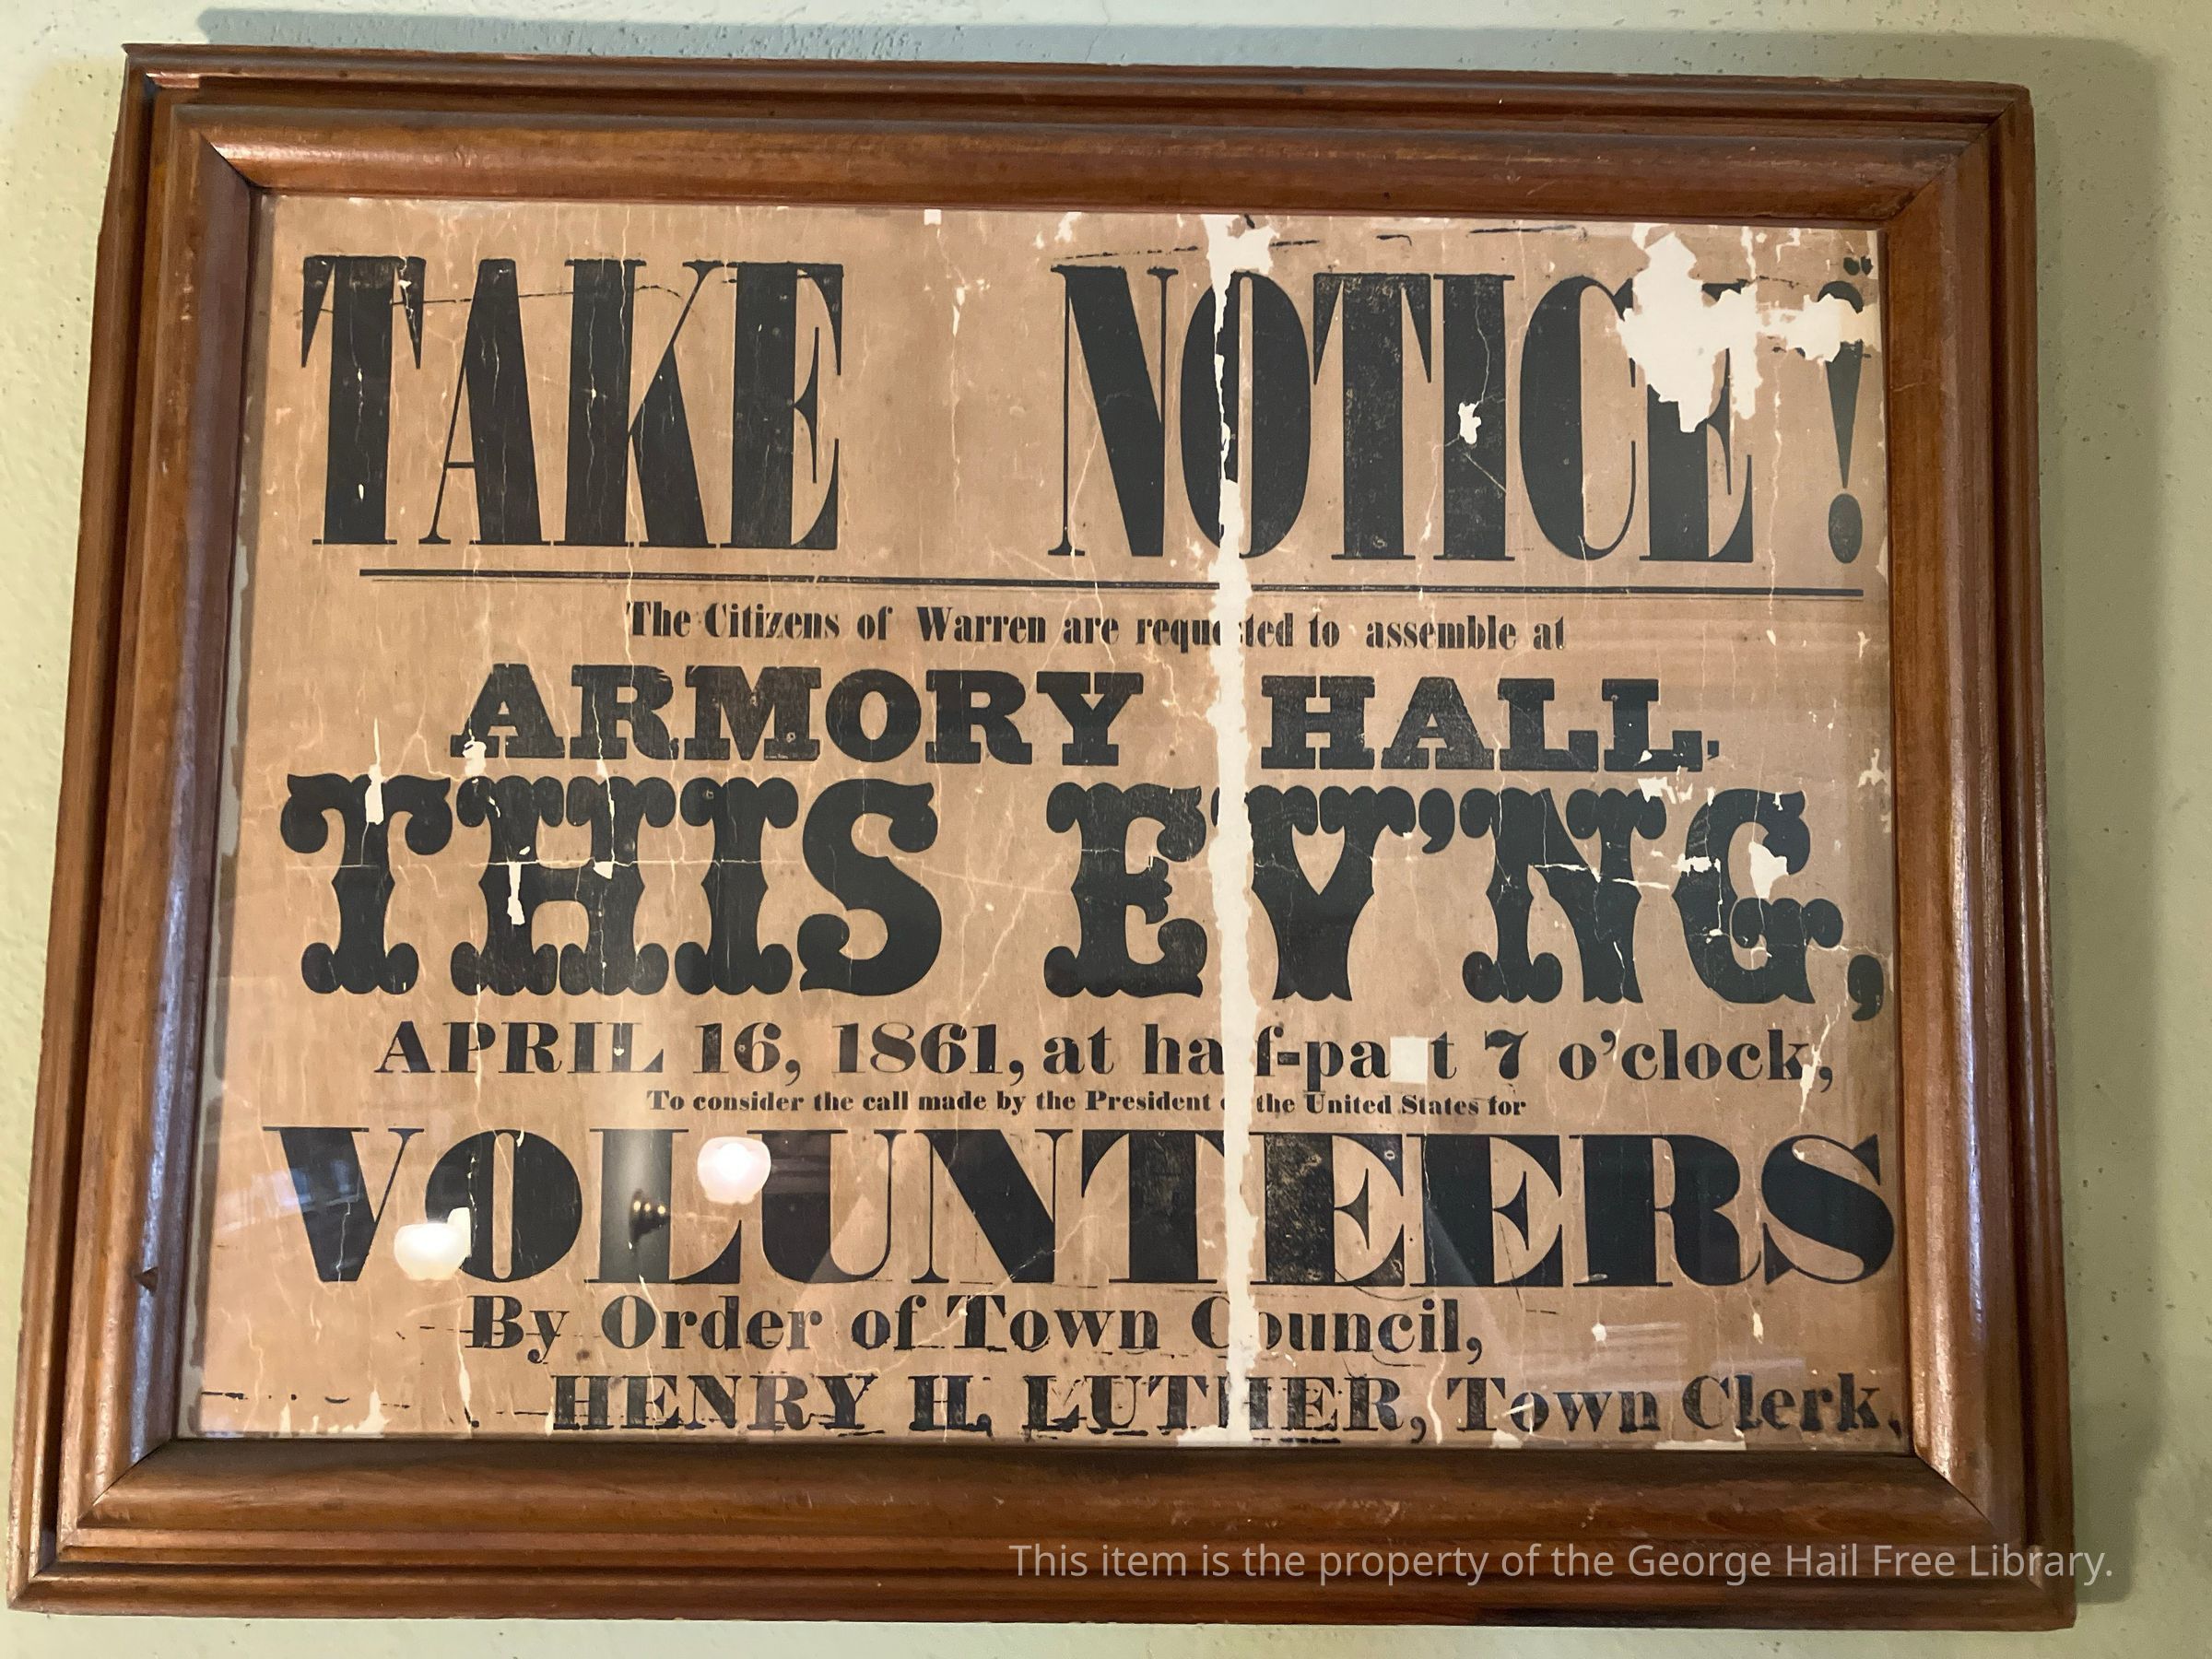 TAKE NOTICE!
The Citizens of Warren are requested to assemble at
ARMORY HALL,
THIS EV'NG,
APRIL 16, 1861, at half-past 7 o'clock,
To consider the call made by the President of the United States for
VOLUNTEERS
By Order of Town Council,
HENRY H. LUTHER, Town Clerk.
This item is the property of the George Hail Free Library.